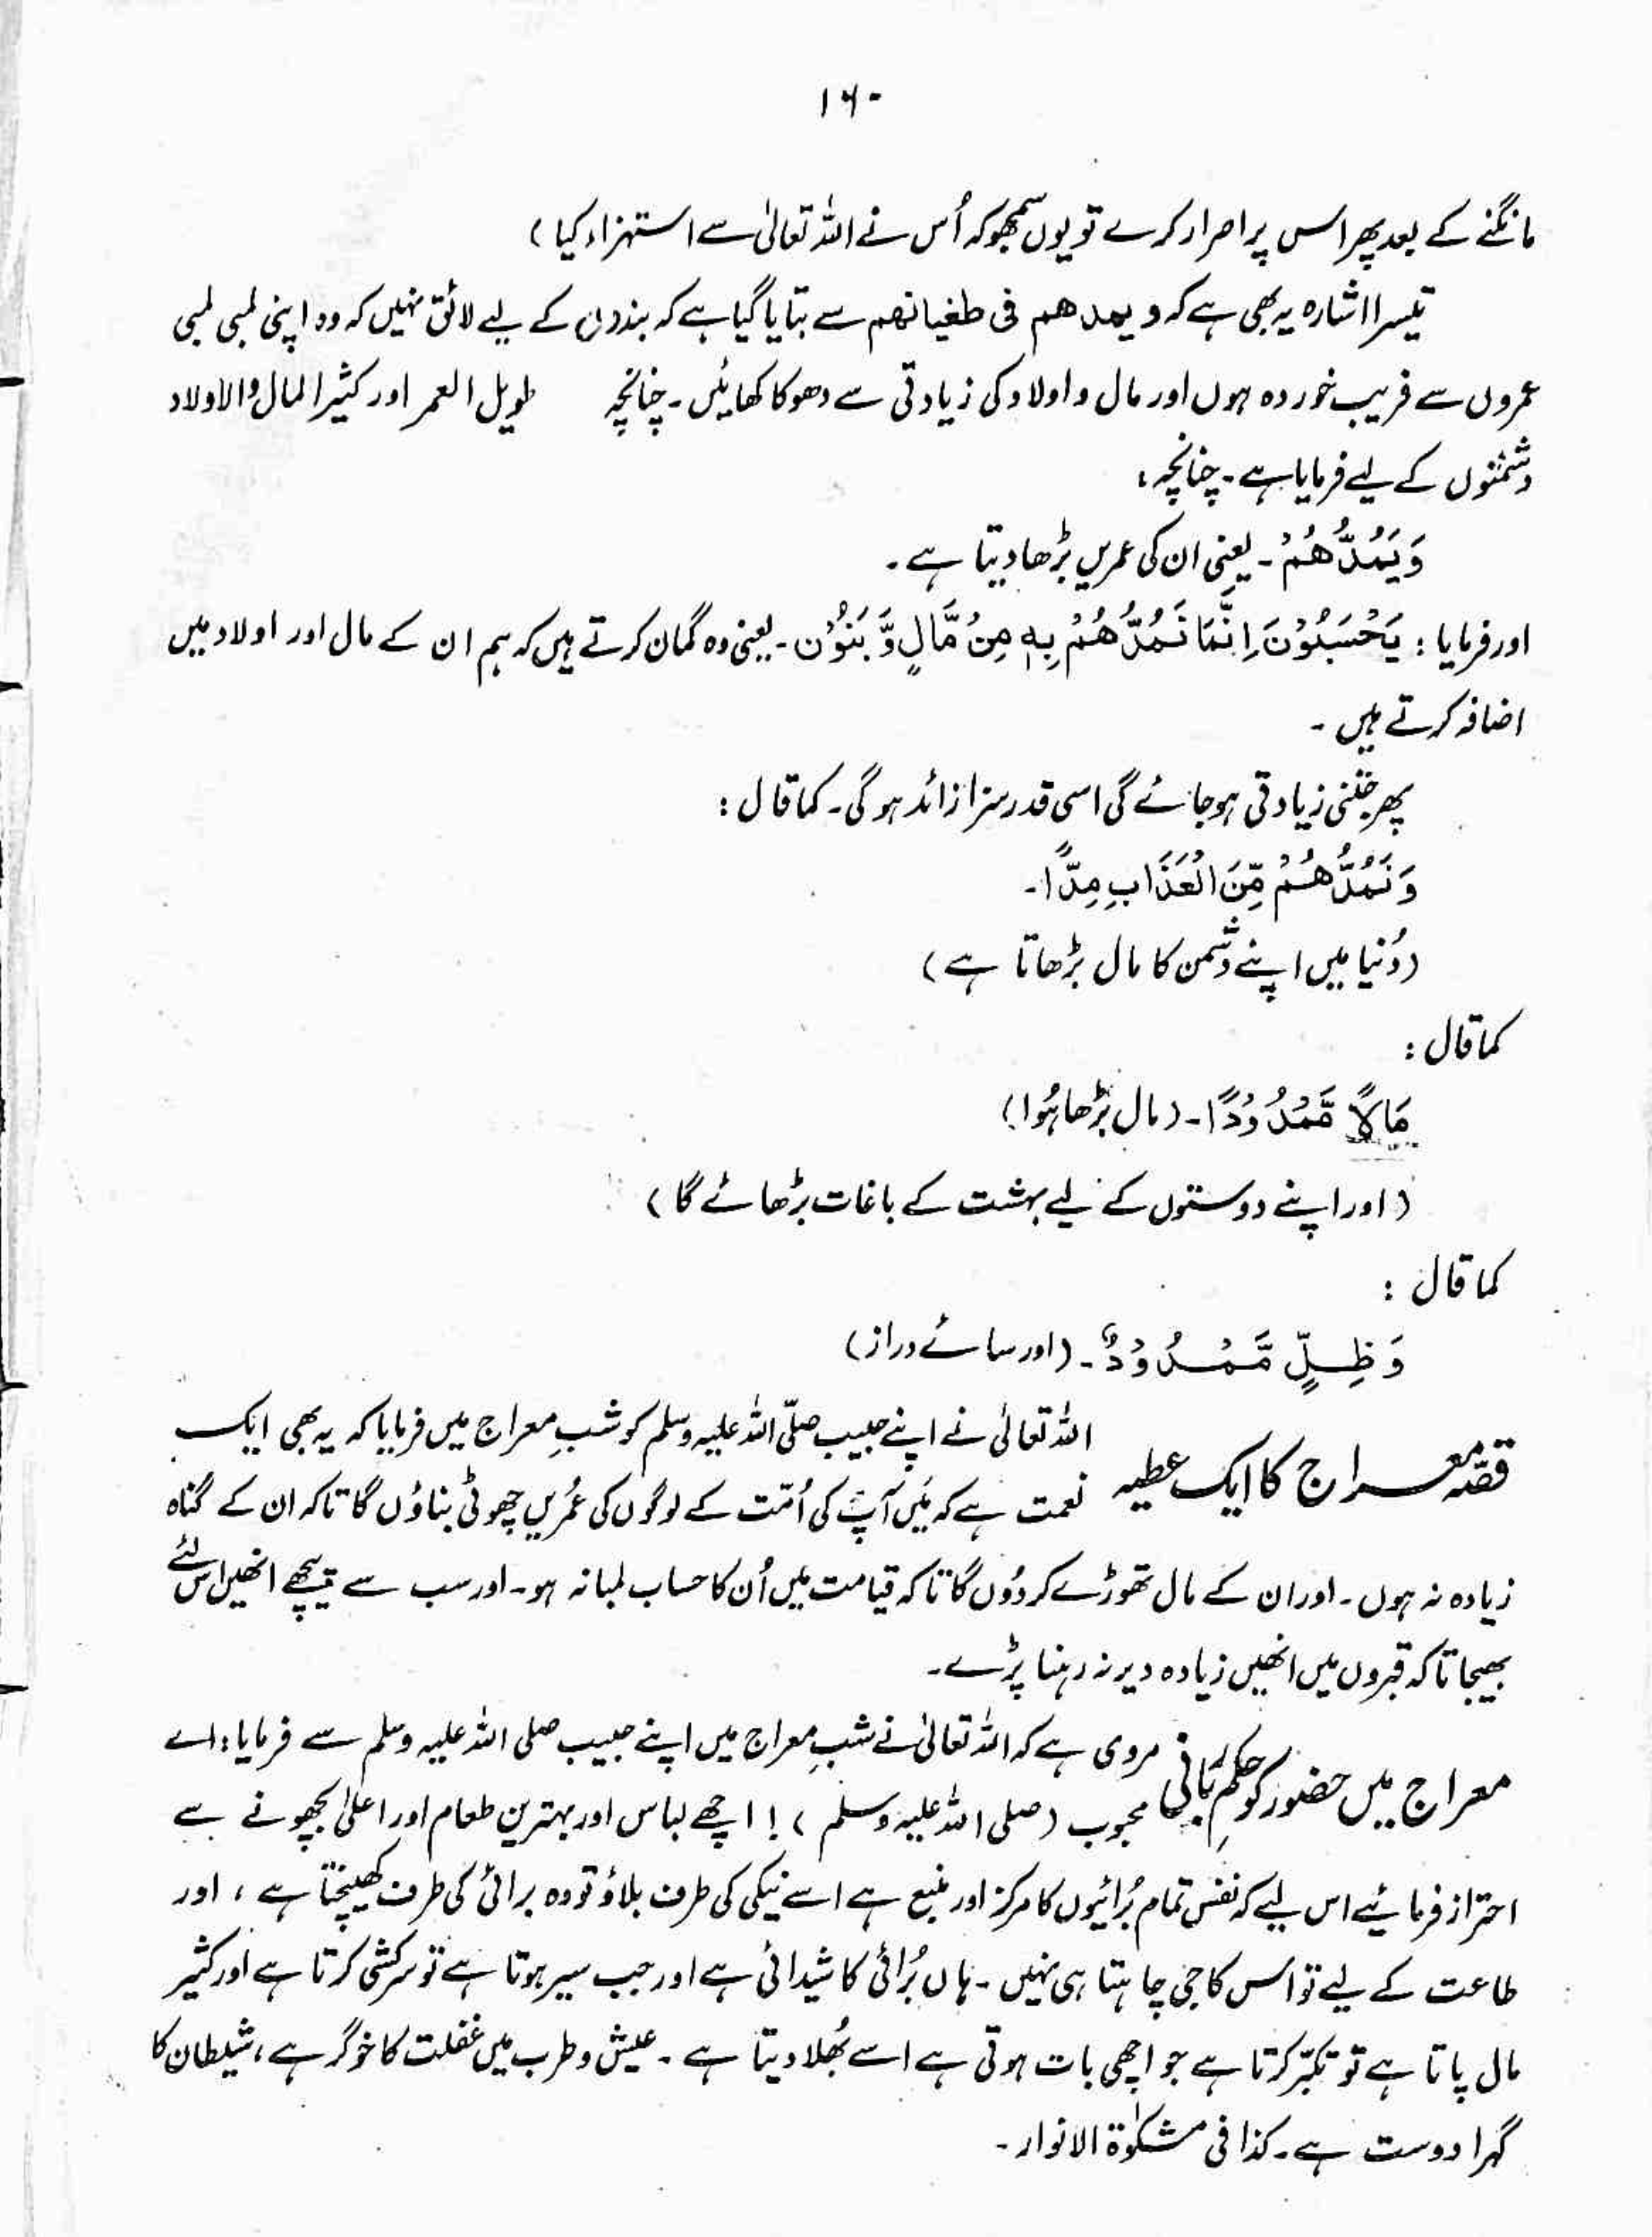 ۱۶۰
مانگنے کے بعد پھر اس پر اصرار کرے تو یوں سمجھو کہ اُس نے اللہ تعالیٰ سے استہزاء کیا )
تیسرا اشارہ یہ بھی ہے کہ و یمدھم فی طغیانھم سے بتایا گیا ہے کہ بندوں کے لیے لائق نہیں کہ وہ اپنی لمبی لمبی
عمروں سے فریب خوردہ ہوں اور مال و اولاد کی زیادتی سے دھوکا کھائیں ۔ چنانچہ طویل العمر اور کثیر المال والاولاد
دشمنوں کے لیے فرمایا ہے ۔ چنانچہ :
وَیَمُدُّھُمْ ۔ یعنی ان کی عمریں بڑھا دیتا ہے ۔
اور فرمایا : یَحْسَبُوْنَ اِنَّمَا نَمُدُّھُمْ بِہٖ مِنْ مَّالٍ وَّ بَنُوْنَ ۔ یعنی وہ گمان کرتے ہیں کہ ہم ان کے مال اور اولاد میں
اضافہ کرتے ہیں ۔
پھر جتنی زیادتی ہو جائے گی اسی قدر سزا زائد ہو گی ۔ کما قال :
وَنَمُدُّھُمْ مِّنَ الْعَذَابِ مِدًّا ۔
(دُنیا میں اپنے دشمن کا مال بڑھاتا ہے)
کما قال :
مَالًا مَّمْدُوْدًا ۔ (مال بڑھا ہُوا)
( اور اپنے دوستوں کے لیے بہشت کے باغات بڑھائے گا )
کما قال :
وَ ظِلٍّ مَّمْدُوْدٌ ۔ (اور سائے دراز)
قصّہ معراج کا ایک عطیہ
اللہ تعالیٰ نے اپنے حبیب صلّی اللہ علیہ وسلم کو شبِ معراج میں فرمایا کہ یہ بھی ایک
نعمت ہے کہ مَیں آپؐ کی اُمّت کے لوگوں کی عُمریں چھوٹی بناؤں گا تاکہ ان کے گناہ
زیادہ نہ ہوں ۔ اور ان کے مال تھوڑے کر دُوں گا تاکہ قیامت میں اُن کا حساب لمبا نہ ہو ۔ اور سب سے پیچھے انھیں اس لئے
بھیجا تاکہ قبروں میں انھیں زیادہ دیر نہ رہنا پڑے ۔
معراج میں حضور کو حکمِ ربّانی
مروی ہے کہ اللہ تعالیٰ نے شبِ معراج میں اپنے حبیب صلی اللہ علیہ وسلم سے فرمایا : اے
محبوب (صلی اللہ علیہ وسلم ) ! اچھے لباس اور بہترین طعام اور اعلیٰ بچھونے سے
احتراز فرمائیے اس لیے کہ نفس تمام بُرائیوں کا مرکز اور منبع ہے اسے نیکی کی طرف بلاؤ تو وہ برائی کی طرف کھینچتا ہے ، اور
طاعت کے لیے تو اس کا جی چاہتا ہی نہیں ۔ ہاں بُرائی کا شیدائی ہے اور جب سیر ہوتا ہے تو سرکشی کرتا ہے اور کثیر
مال پاتا ہے تو تکبّر کرتا ہے جو اچھی بات ہوتی ہے اسے بُھلا دیتا ہے ۔ عیش و طرب میں غفلت کا خوگر ہے ، شیطان کا
گہرا دوست ہے ۔ کذا فی مشکوٰۃ الانوار ۔